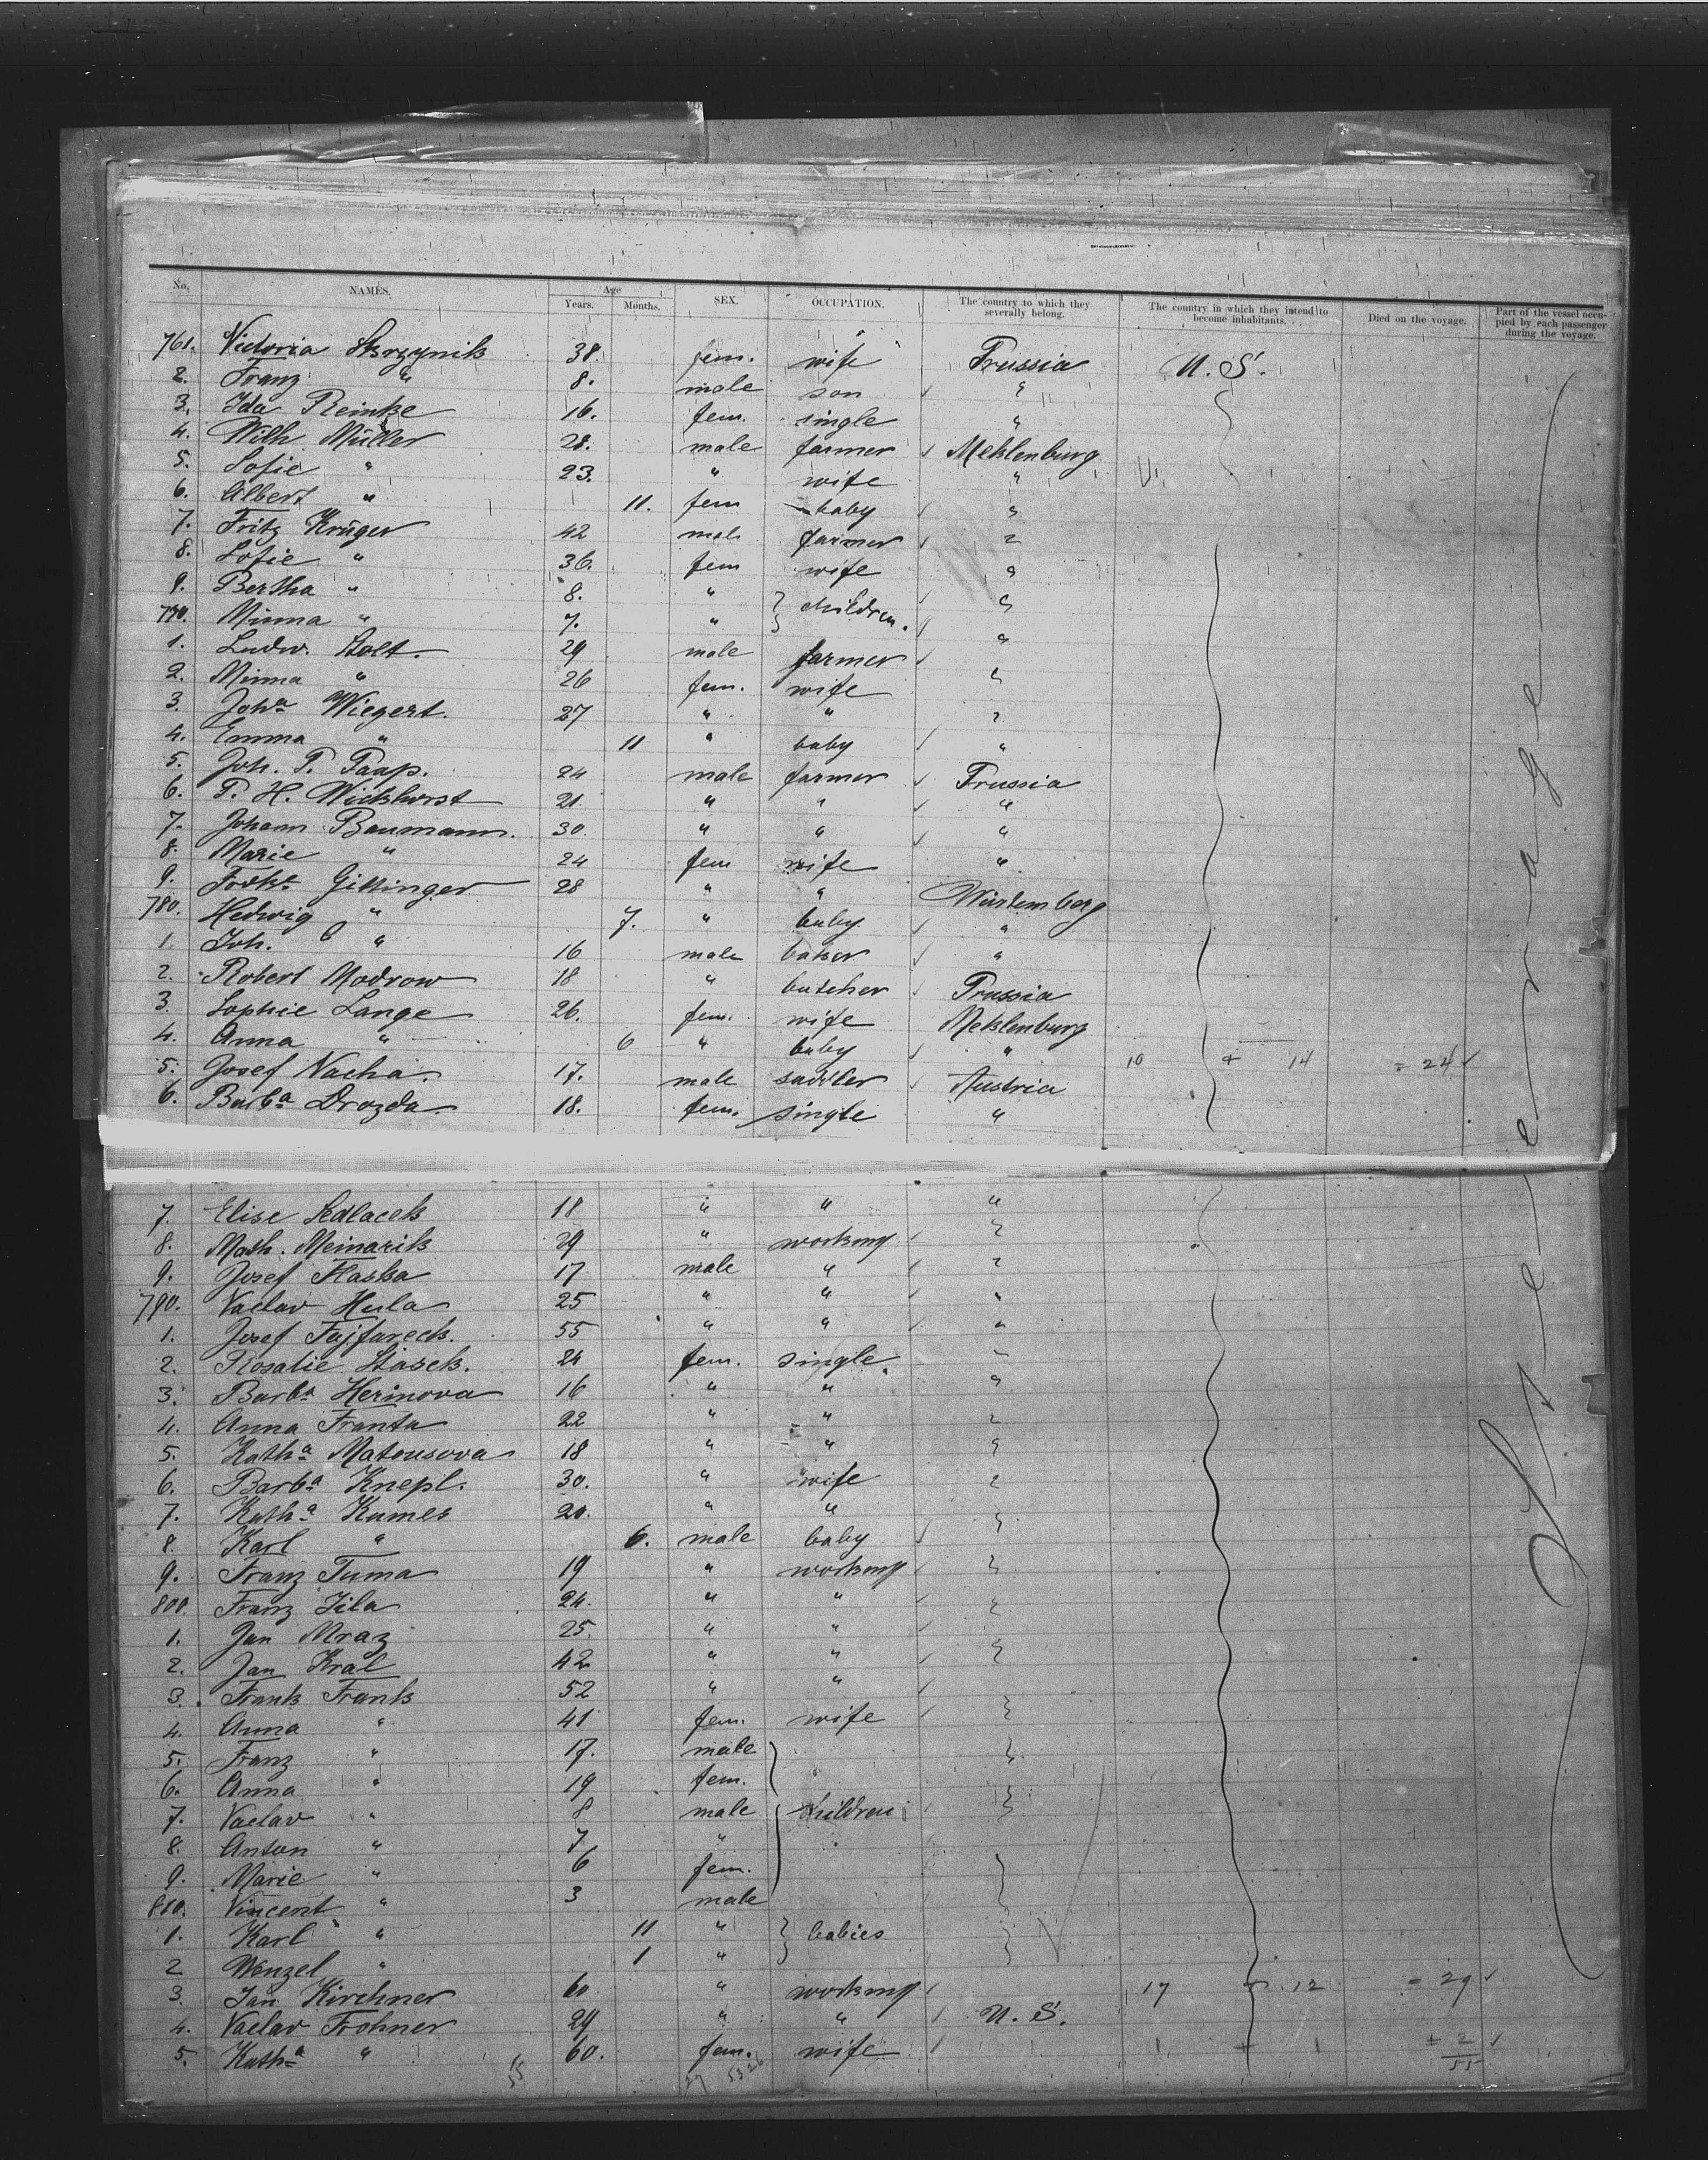 No. NAMES. Age Years. Months. SEX. OCCUPATION. The country to which they severally belong. The country in which they intend to become inhabitants. Died on the voyage. Part of the vessel occupied by each passenger during the voyage.
761. Victoria Skrzypnik 38. fem. wife Prussia U. S.
2. Franz " 8. male son "
3. Ida Reinke 16. fem. single "
4. Wilh. Müller 28. male farmer Meklenburg
5. Sofie " 23. " wife "
6. Albert " 11. fem baby "
7. Fritz Krüger 42 male farmer "
8. Sofie " 36. fem wife "
9. Bertha " 8. " } children. "
770. Minna " 7. " "
1. Ludw. Bolt. 29 male farmer
2. Minna " 26 fem. wife "
3. Joh.a Wiegert. 27 " " "
4. Emma " 11 " baby "
5. Joh. P. Paap. 24 male farmer Prussia
6. P. H. Wickhorst 21 " " "
7. Johann Baumann. 30 " " "
8. Marie " 24 fem wife "
9. Gittinger 28 " " Würtemberg
780. Hedwig " 7. " baby "
1. Joh. " 16 male baker "
2. Robert Modrow 18 " butcher Prussia
3. Sophie Lange 26. fem. wife Meklenburg
4. Anna " 6 " baby " 10 + 14 = 24
5. Josef Vacha. 17. male saddler Austria
6. Barb.a Drozda 18. fem. single "
7. Elise Sedlacek 18 " " "
8. Math. Meinarik 29 " working "
9. Josef Flaska 17 male " "
790. Vaclav Hula 25 " " "
1. Josef Fajfareck. 55 " " "
2. Rosalie Stasek. 24 fem. single "
3. Barb.a Herinova 16 " " "
4. Anna Franta 22 " " "
5. Kath.a Matousova 18 " " "
6. Barb.a Knepl. 30. " wife "
7. Kath.a Kumes 20. " " "
8. Karl " 6. male baby "
9. Franz Tuma 19 " working "
800. Franz Jila 24. " " "
1. Jan Mraz 25. " " "
2. Jan Kral 42 " "
3. Frank Frank 52 " "
4. Anna " 41 fem. wife "
5. Franz " 17. male "
6. Anna " 19 fem.
7. Vaclav " 8 male children "
8. Anton " 7 "
9. Marie " 6 fem.
810. Vincent " 3 male
1. Karl " 11 " } babies
2 Wenzel " 1 "
3. Jan Kirchner 60 " working 17 + 12 = 29
4. Vaclav Frohner 29 " " U. S.
5. Kath.a " 60. fem. wife 1 + 1 + 2
55
55 29 26
Steerage